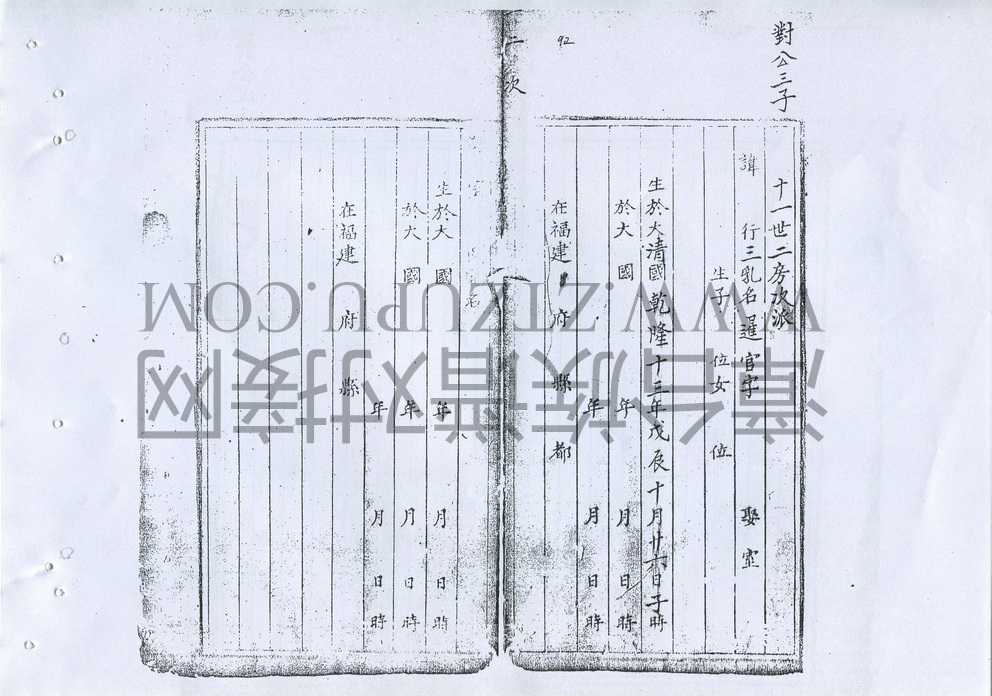 對公三子
十一世二房次派
諱 行三乳名暹官字 娶室
生子 位女 位
生於大清國乾隆十三年戊辰十月廿六日子時
於大 國 年 月 日時
年 月 日時
在福建 府 縣 都
92
二次
名
生於大 國 年 月 日時
於大 國 年 月 日時
年 月 日時
在福建 府 縣
WWW.ZTZUPU.COM
漳台族谱对接网